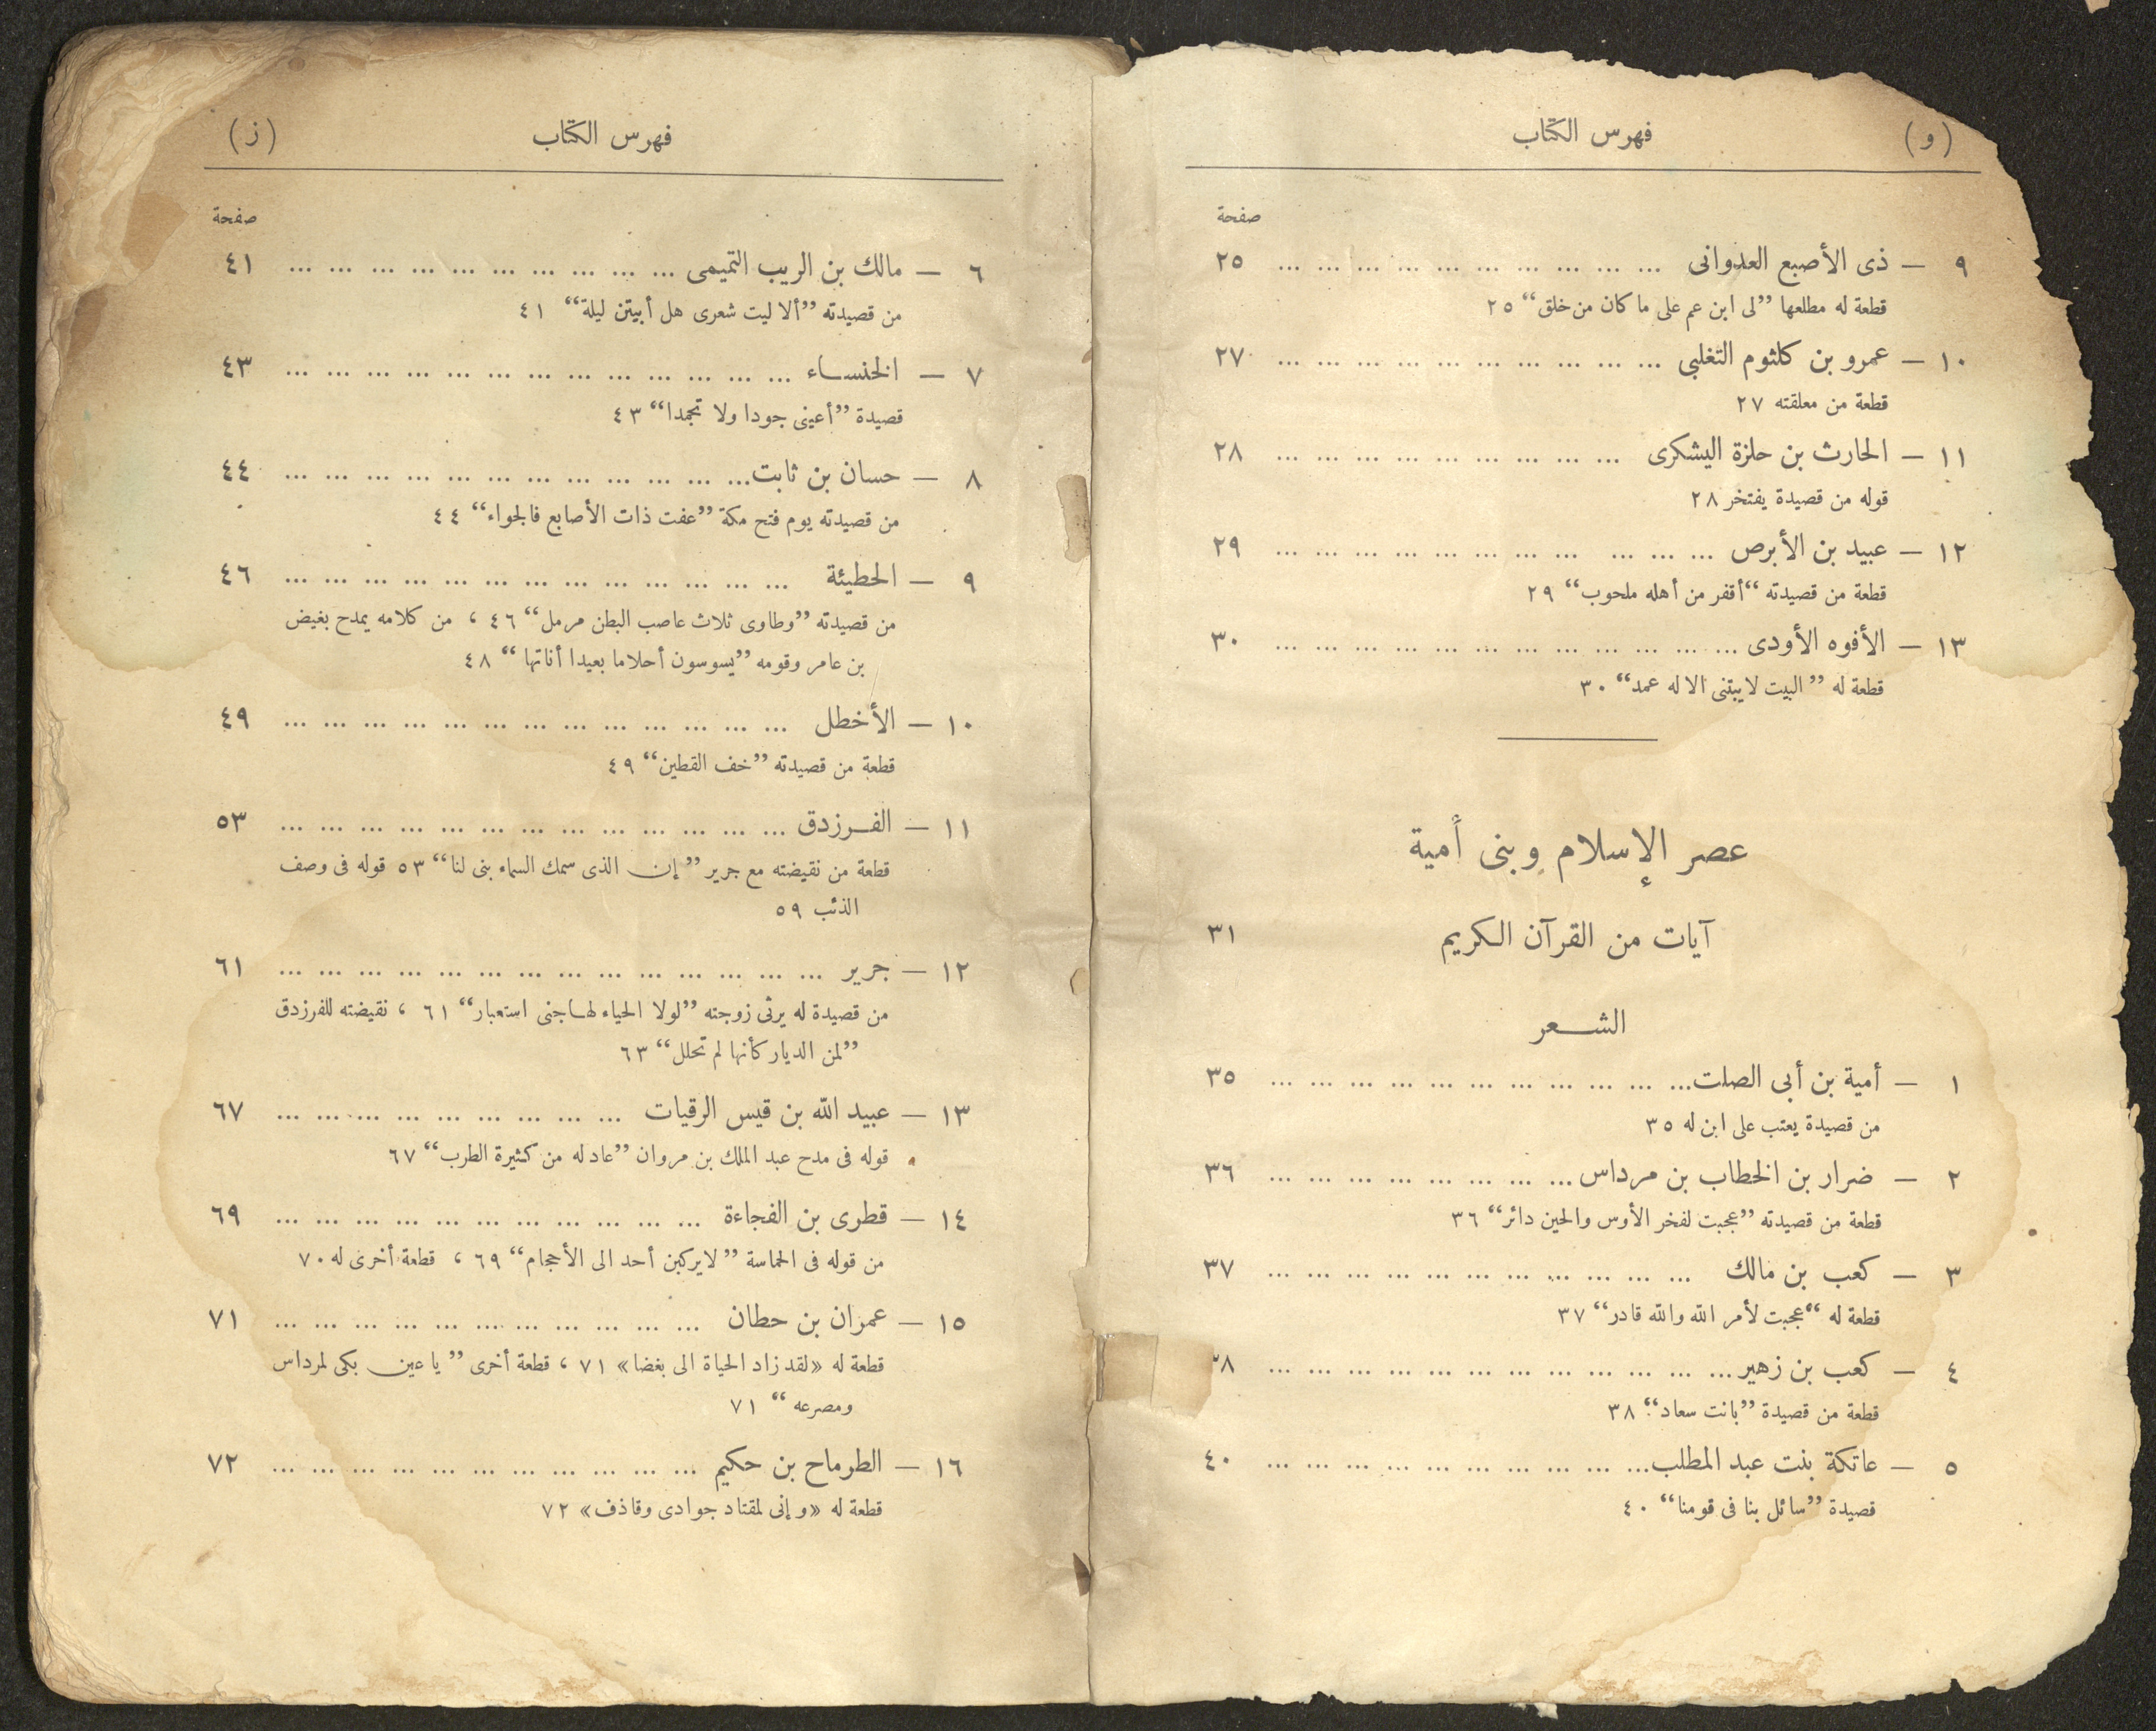 (و)
فهرس الكتاب
صفحة
٩ — ذى الأصبع العدوانى ... ... ... ... ... ... ... ... ... ... ٢٥
قطعة له مطلعها ”لى ابن عم على ما كان من خلق“ ٢٥
١٠ — عمرو بن كلثوم التغلبى ... ... ... ... ... ... ... ... ... ... ٢٧
قطعة من معلقته ٢٧
١١ — الحارث بن حلزة اليشكرى ... ... ... ... ... ... ... ... ... ٢٨
قوله من قصيدة يفتخر ٢٨
١٢ — عبيد بن الأبرص ... ... ... ... ... ... ... ... ... ... ... ٢٩
قطعة من قصيدته “أقفر من أهله ملحوب“ ٢٩
١٣ — الأفوه الأودى ... ... ... ... ... ... ... ... ... ... ... ... ٣٠
قطعة له ”البيت لا يبتنى الا له عمد“ ٣٠
عصر الإسلام وبنى أمية
آيات من القرآن الكريم ٣١
الشعر
١ — أمية بن أبى الصلت ... ... ... ... ... ... ... ... ... ... ... ٣٥
من قصيدة يعتب على ابن له ٣٥
٢ — ضرار بن الخطاب بن مرداس ... ... ... ... ... ... ... ... ٣٦
قطعة من قصيدته ”عجبت لفخر الأوس والحين دائر“ ٣٦
٣ — كعب بن مالك ... ... ... ... ... ... ... ... ... ... ... ٣٧
قطعة له “عجبت لأمر الله والله قادر“ ٣٧
٤ — كعب بن زهير ... ... ... ... ... ... ... ... ... ... ... ... ٣٨
قطعة من قصيدة ”بانت سعاد“ ٣٨
٥ — عاتكة بنت عبد المطلب ... ... ... ... ... ... ... ... ... ... ٤٠
قصيدة ”سائل بنا فى قومنا“ ٤٠
فهرس الكتاب
(ز)
صفحة
٦ — مالك بن الريب التميمى ... ... ... ... ... ... ... ... ... ... ٤١
من قصيدته ”ألا ليت شعرى هل أبيتن ليلة“ ٤١
٧ — الخنساء ... ... ... ... ... ... ... ... ... ... ... ... ... ٤٣
قصيدة ”أعينى جودا ولا تجمدا“ ٤٣
٨ — حسان بن ثابت ... ... ... ... ... ... ... ... ... ... ... ... ٤٤
من قصيدته يوم فتح مكة ”عفت ذات الأصابع فالجواء“ ٤٤
٩ — الحطيئة ... ... ... ... ... ... ... ... ... ... ... ... ... ٤٦
من قصيدته ”وطاوى ثلاث عاصب البطن مرمل“ ٤٦ ، من كلامه يمدح بغيض
بن عامر وقومه ”يسوسون أحلاما بعيدا أناتها“ ٤٨
١٠ — الأخطل ... ... ... ... ... ... ... ... ... ... ... ... ... ٤٩
قطعة من قصيدته ”خف القطين“ ٤٩
١١ — الفرزدق ... ... ... ... ... ... ... ... ... ... ... ... ... ٥٣
قطعة من نقيضته مع جرير ”إن الذى سمك السماء بنى لنا“ ٥٣ قوله فى وصف
الذئب ٥٩
١٢ — جرير ... ... ... ... ... ... ... ... ... ... ... ... ... ... ٦١
من قصيدة له يرثى زوجته ”لولا الحياء لهاجنى استعبار“ ٦١ ، نقيضته للفرزدق
”لمن الديار كأنها لم تحلل“ ٦٣
١٣ — عبيد الله بن قيس الرقيات ... ... ... ... ... ... ... ... ... ٦٧
قوله فى مدح عبد الملك بن مروان ”عاد له من كثيرة الطرب“ ٦٧
١٤ — قطرى بن الفجاءة ... ... ... ... ... ... ... ... ... ... ... ٦٩
من قوله فى الحماسة ”لا يركبن أحد الى الأحجام“ ٦٩ ، قطعة أخرى له ٧٠
١٥ — عمران بن حطان ... ... ... ... ... ... ... ... ... ... ... ٧١
قطعة له «لقد زاد الحياة الى بغضا» ٧١ ، قطعة أخرى ”يا عين بكى لمرداس
ومصرعه“ ٧١
١٦ — الطرماح بن حكيم ... ... ... ... ... ... ... ... ... ... ... ٧٢
قطعة له «وإنى لمقتاد جوادى وقاذف» ٧٢